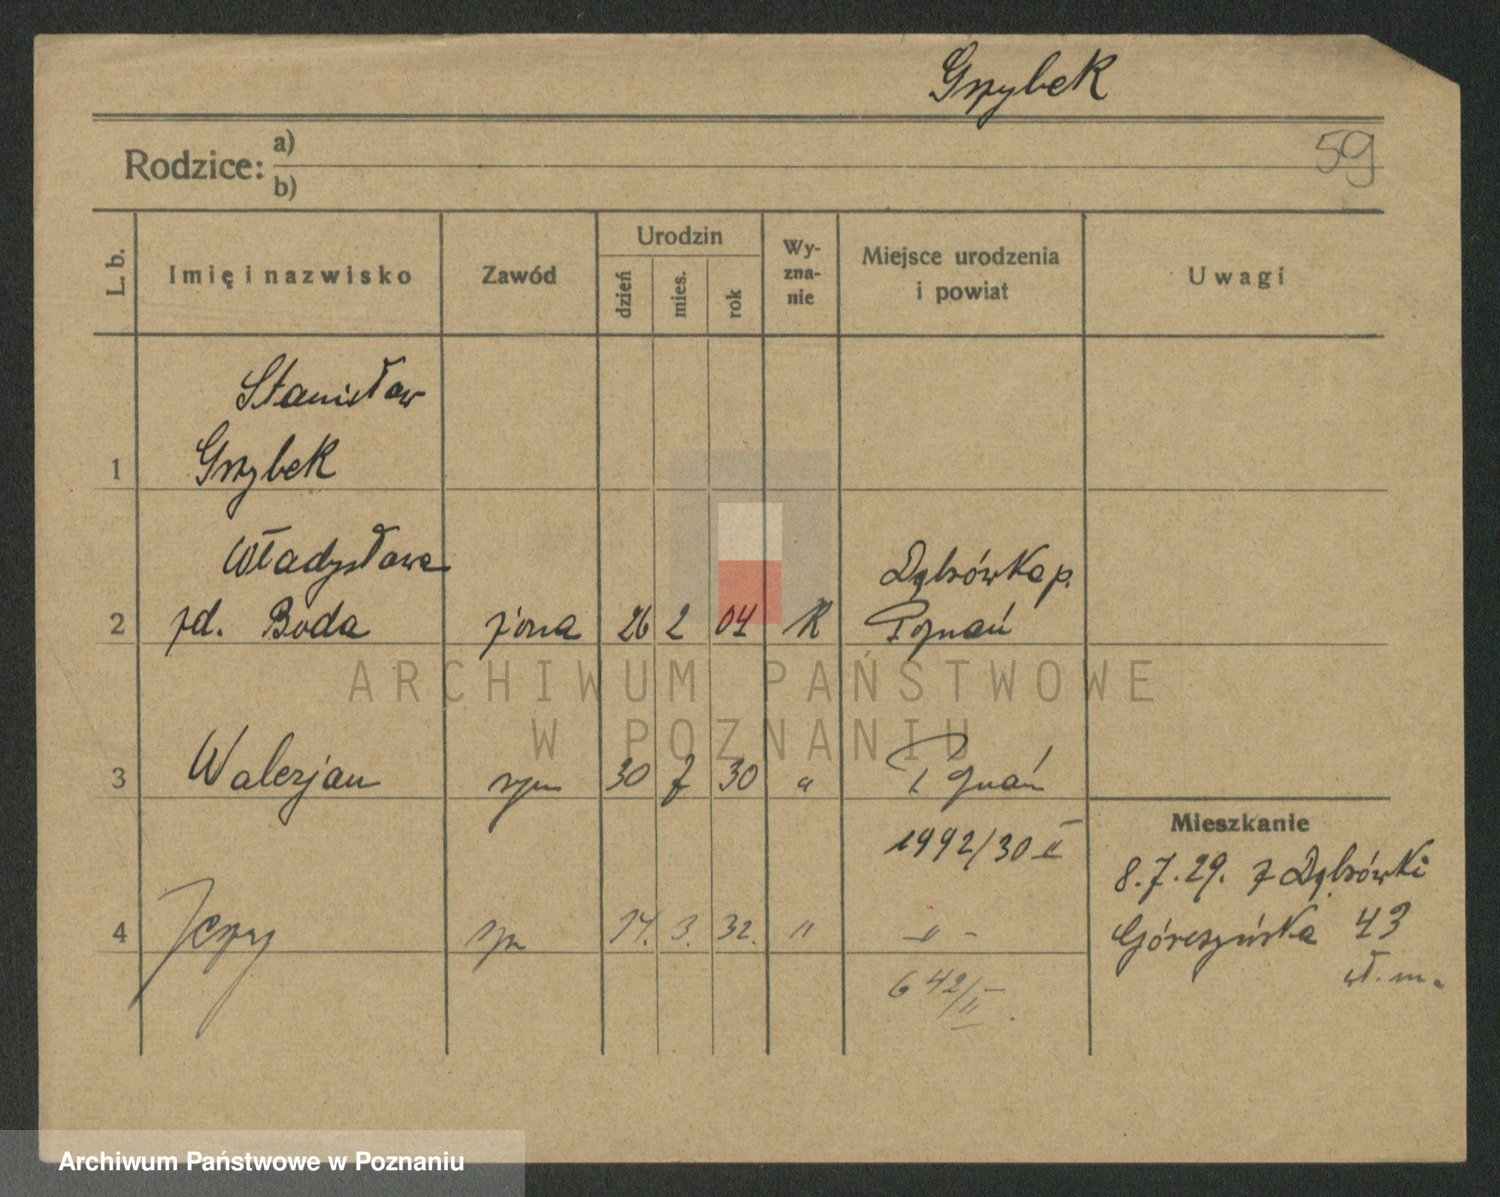 Grzybek
59
Rodzice: a)
b)
L. b.
Imię i nazwisko
Zawód
Urodzin
dzień
mies.
rok
Wy-
zna-
nie
Miejsce urodzenia
i powiat
Uwagi
Stanisław
1 Grzybek
Władysława Dąbrówka p.
2 zd. Boda żona 26 2 04 K Poznań
ARCHIWUM PAŃSTWOWE
W POZNANIU
3 Walerjan syn 30 7 30 " Poznań
Mieszkanie
1992/30 II
8.7.29. z Dąbrówki
4 Jerzy syn 14. 3. 32. " - " -
Góreczyńska 43
642/II
wł. m.
Archiwum Państwowe w Poznaniu